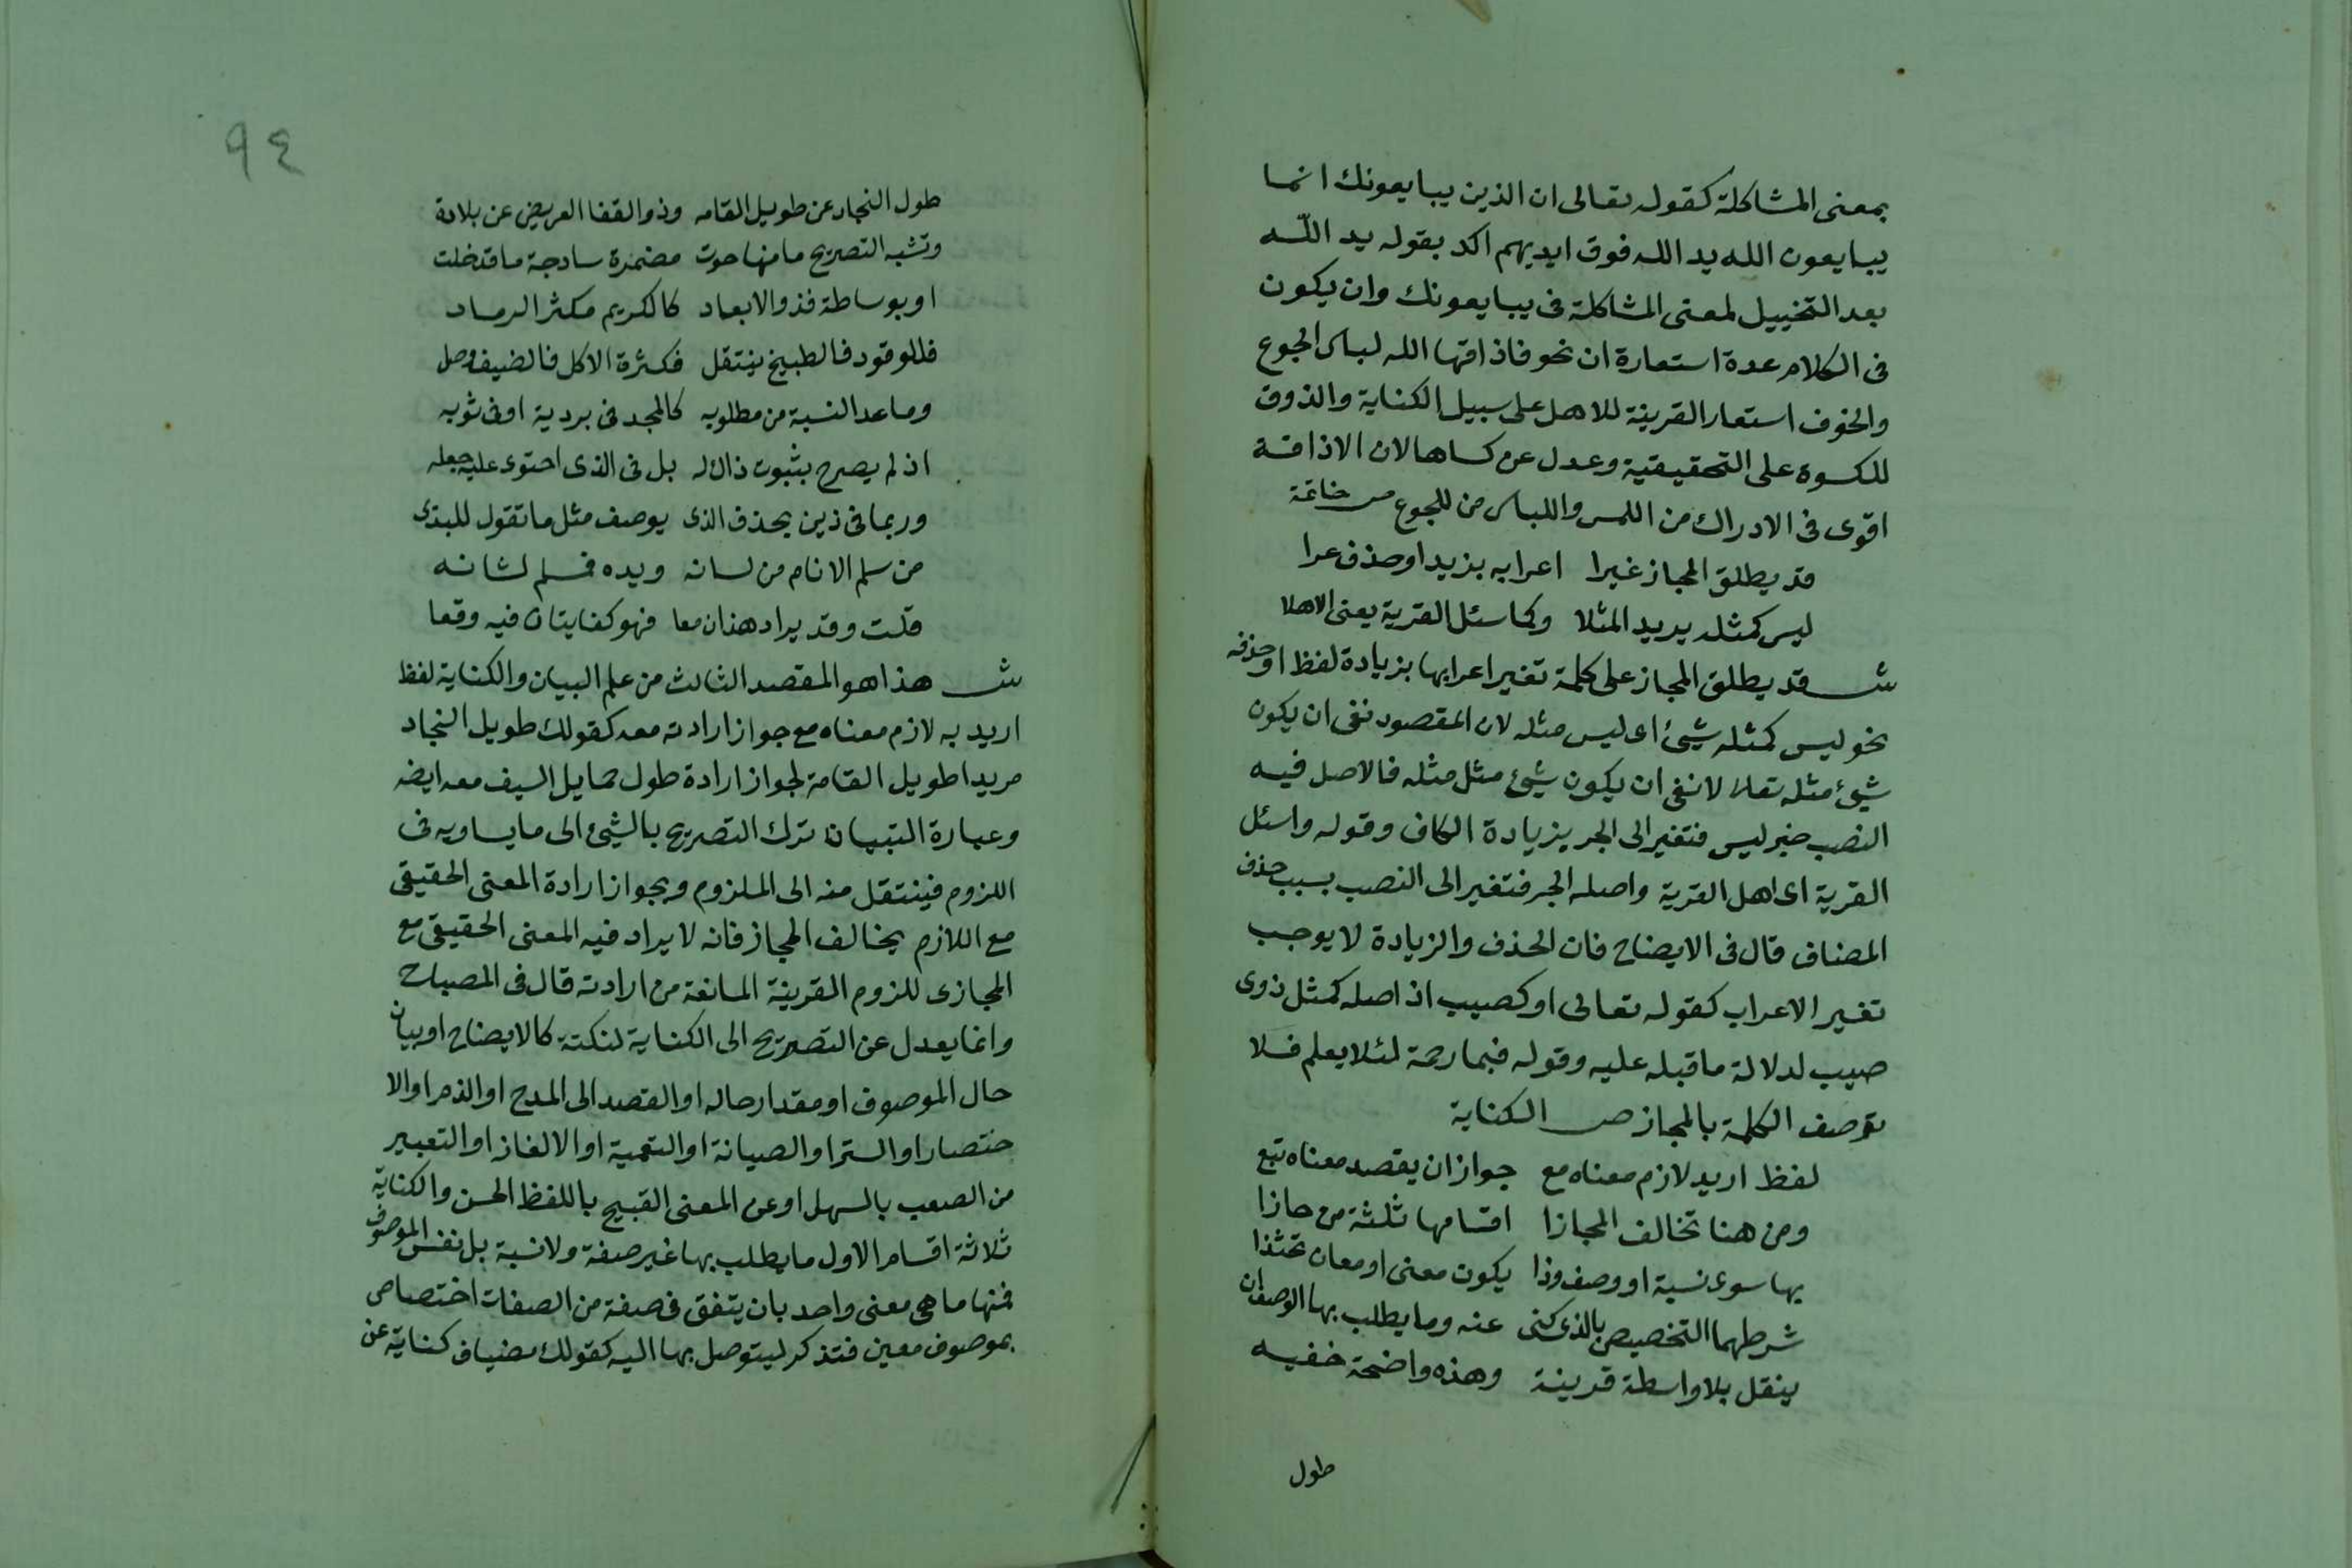 بمعنى المشاكلة كقوله تعالى ان الذين يبايعونك انما
يبايعون الله يد الله فوق ايديهم اكد بقوله يد اللّه
بعد التخييل لمعنى المشاكلة فى يبايعونك وان يكون
فى الكلام عدة استعارة ان نحو فاذاقها الله لباس الجوع
والخوف استعار القرينة للاهل على سبيل الكناية والذوق
للكسوة على التحقيقية وعدل عن كساها لان الاذاقة
اقوى فى الادراك من اللمس واللباس من للجوع ص خاتمة
قد يطلق المجاز غيرا اعرابه بزيد او حذف عرا
ليس كمثله يريد المثلا وكاسئل القرية يعنى الاهلا
ش قد يطلق المجاز على كلمة تغير اعرابها بزيادة لفظ او حذفه
نحو ليس كمثله شيئ اى ليس مثله لان المقصود نفى ان يكون
شيئ مثله تعلا لا نفى ان يكون شيئ مثل مثله فالاصل فيه
النصب خبر ليس فتغير الى الجر بزيادة الكاف وقوله واسئل
القرية اى اهل القرية واصله الجر فتغير الى النصب بسبب حذف
المضاف قال فى الايضاح فان الحذف والزيادة لا يوجب
تغير الاعراب كقوله تعالى او كصيب اذ اصله كمثل ذوى
صيب لدلالة ما قبله عليه وقوله فبما رحمة لئلا يعلم فلا
توصف الكلمة بالمجاز ص الكناية
لفظ اريد لازم معناه مع جواز ان يقصد معناه تبع
ومن هنا تخالف المجازا اقسامها ثلثة من حازا
بها سوى نسبة او وصف وذا يكون معنى او معان تحتذا
شرطهما التخصيص بالذى كنى عنه وما يطلب بها الوصف ان
ينقل بلا واسطة قرينة وهذه واضحة خفيه
طول
٩٤
طول النجاد عن طويل القامه وذو القفا العريض عن بلادة
وتشبه التصريح ما منها حوت مضمرة ساذجة ما قد خلت
او بوساطة فذو الابعاد كالكريم مكثر الرماد
فللوقود فالطبيخ ينتقل فكثرة الاكل فالضيف وصل
وما عد النسبة من مطلوبه كالمجد فى بردية او فى ثوبه
اذ لم يصرح بثبوت ذاك له بل فى الذى احتوى عليه جعله
وربما فى ذين يحذف الذى يوصف مثل ما تقول للبذى
من سلم الانام من لسانه ويده فسلم لشانه
قلت وقد يراد هذان معا فهو كفايتان فيه وقعا
ش هذا هو المقصد الثالث من علم البيان والكناية لفظ
اريد به لازم معناه مع جواز ارادته معه كقولك طويل النجاد
مريدا طويل القامة لجواز ارادة طول حمايل السيف معه ايضه
وعبارة التبيان ترك التصريح بالشيئ الى ما يساويه فى
اللزوم فينتقل منه الى الملزوم وبجواز ارادة المعنى الحقيقى
مع اللازم يخالف المجاز فانه لا يراد فيه المعنى الحقيقى مع
المجازى للزوم القرينة المانعة من ارادته قال فى المصباح
وانما يعدل عن التصريح الى الكناية لنكتة كالايضاح او بيان
حال الموصوف او مقدار حاله او القصد الى المدح او الذم او الا
ختصار او الستر او الصيانة او التعمية او الالغاز او التعبير
من الصعب بالسهل او عن المعنى القبيح باللفظ الحسن والكناية
ثلاثة اقسام الاول ما يطلب بها غير صفة ولا نسبة بل نفس الموصوف
فمنها ما هى معنى واحد بان يتفق فى صفة من الصفات اختصاص
بموصوف معين فتذكر ليتوصل بها اليه كقولك مضياف كناية عن